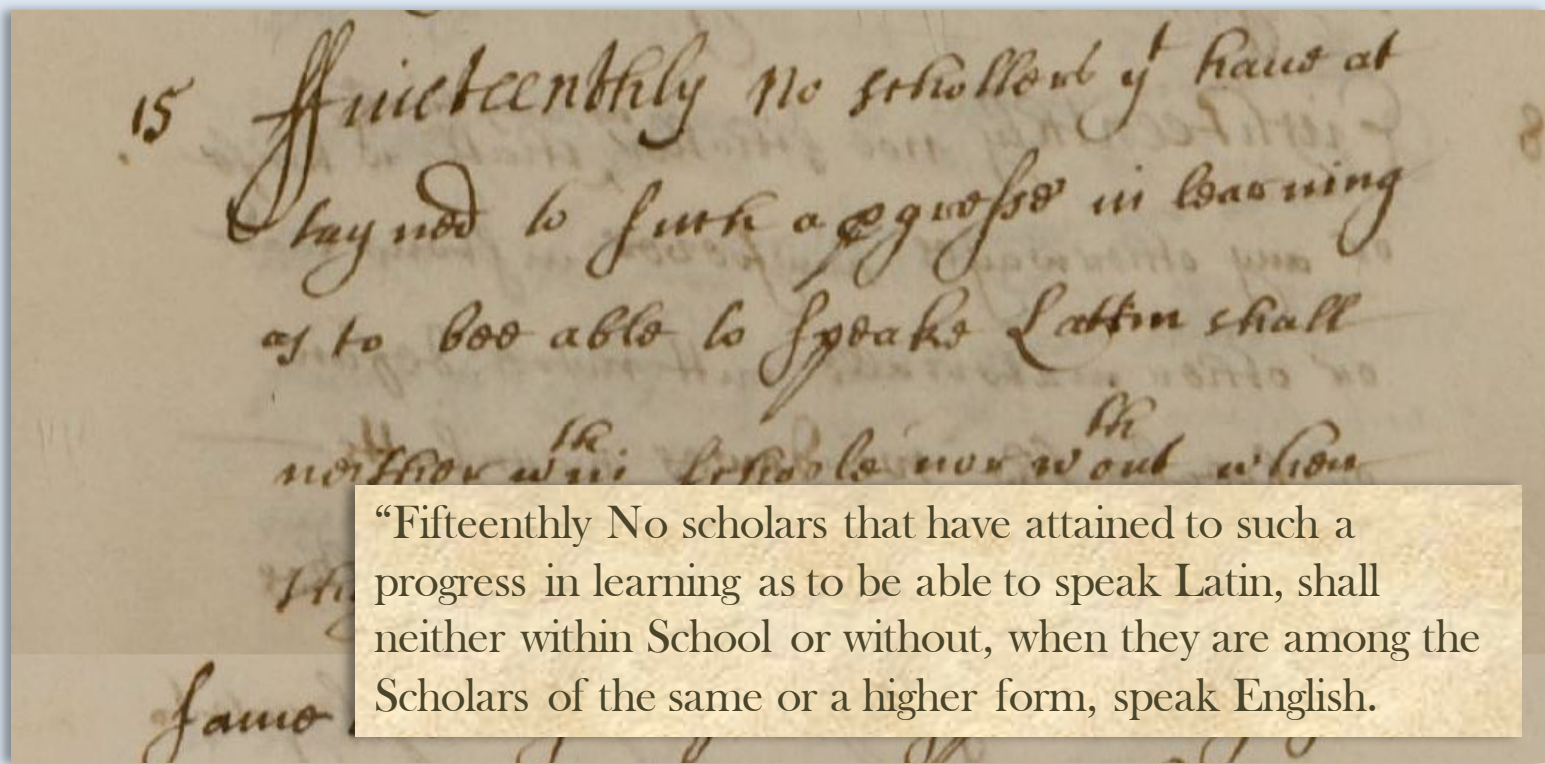 15 ffiueteenthly No schollers yt haue at
tayned to such a progresse in learning
as to bee able to speake Lattin shall
neither wthin schoole nor wthout when
“Fifteenthly No scholars that have attained to such a
progress in learning as to be able to speak Latin, shall
neither within School or without, when they are among the
Scholars of the same or a higher form, speak English.
same